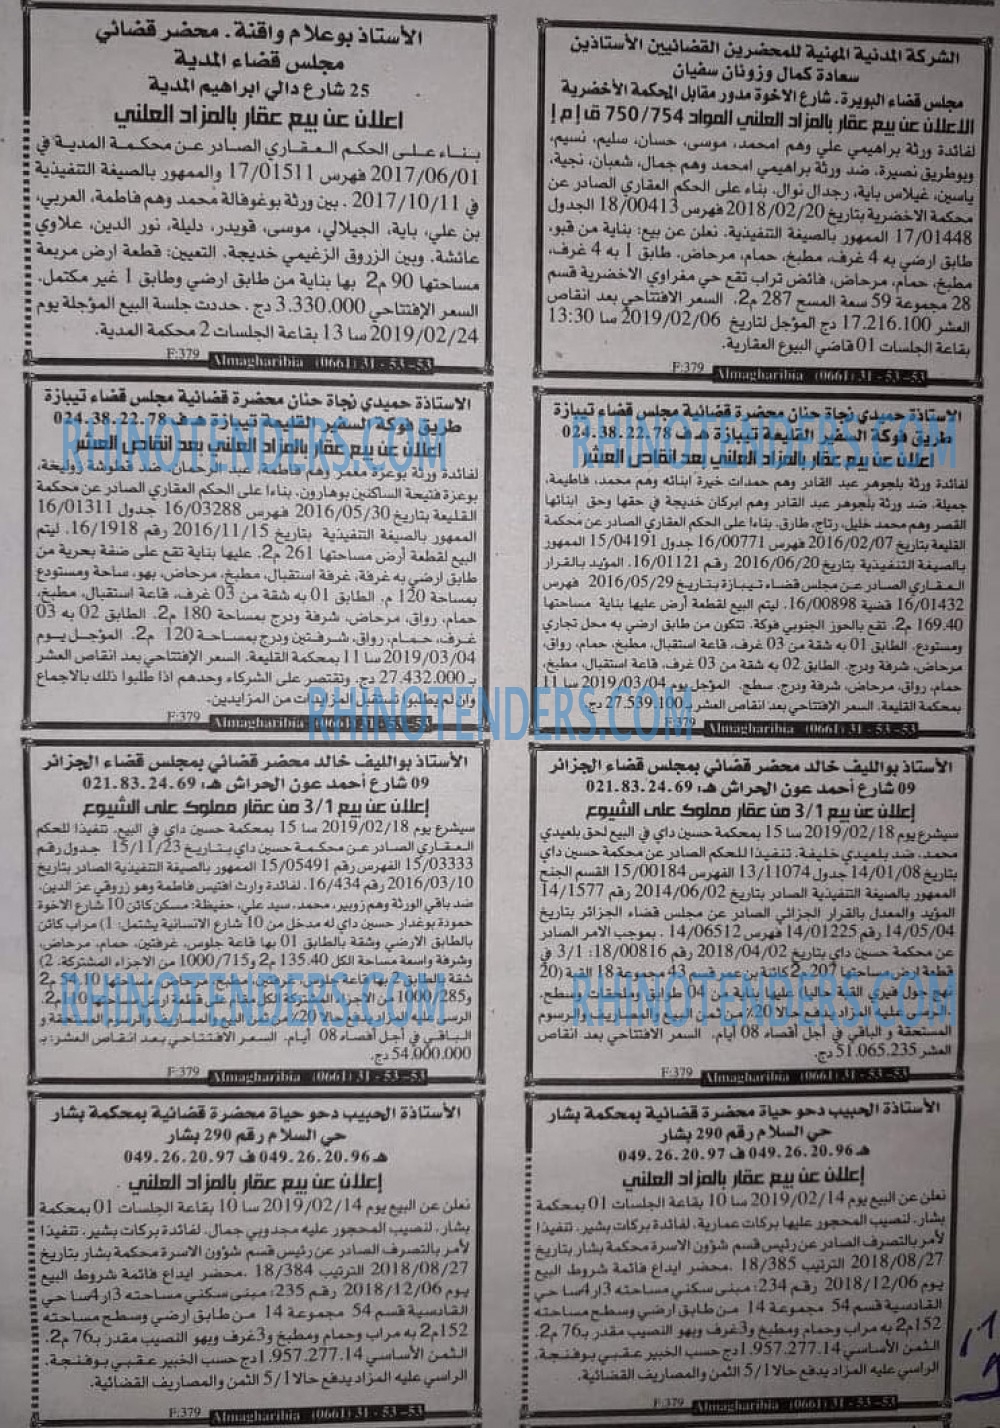 الشركة المدنية المهنية للمحضرين القضائيين الأستاذين
سعادة كمال وزونان سفيان
مجلس قضاء البويرة. شارع الاخوة مدور مقابل المحكمة الأخضرية
الاعلان عن بيع عقار بالمزاد العلني المواد 750/754 ق إ م إ
لفائدة ورثة براهيمي علي وهم امحمد، موسى، حسان، سليم، نسيم،
وبوطريق نصيرة. ضد ورثة براهيمي امحمد وهم جمال، شعبان، نجية،
ياسين، غيلاس باية، رجدال نوال. بناء على الحكم العقاري الصادر عن
محكمة الاخضرية بتاريخ 2018/02/20 فهرس 18/00413 الجدول
17/01448 الممهور بالصيغة التنفيذية. نعلن عن بيع: بناية من قبو،
طابق ارضي به 4 غرف، مطبخ، حمام، مرحاض. طابق 1 به 4 غرف،
مطبخ، حمام، مرحاض، فائض تراب تقع حي مفراوي الاخضرية قسم
28 مجموعة 59 سعة المسح 287 م2. السعر الافتتاحي بعد انقاص
العشر 17.216.100 دج المؤجل لتاريخ 2019/02/06 سا 13:30
بقاعة الجلسات 01 قاضي البيوع العقارية.
F:379 Almagharibia (0661) 31 - 53 -53
الأستاذ بوعلام واقنة. محضر قضائي
مجلس قضاء المدية
25 شارع دالي ابراهيم المدية
اعلان عن بيع عقار بالمزاد العلني
بناء على الحكم العقاري الصادر عن محكمة المدية في
2017/06/01 فهرس 17/01511 والممهور بالصيغة التنفيذية
في 2017/10/11. بين ورثة بوغفالة محمد وهم فاطمة، العربي،
بن علي، باية، الجيلالي، موسى، قويدر، دليلة، نور الدين، علاوي
عائشة. وبين الزروق الزغيمي خديجة. التعيين: قطعة ارض مربعة
مساحتها 90 م2 بها بناية من طابق ارضي وطابق 1 غير مكتمل.
السعر الإفتتاحي 3.330.000 دج. حددت جلسة البيع المؤجلة يوم
2019/02/24 سا 13 بقاعة الجلسات 2 محكمة المدية.
F:379 Almagharibia (0661) 31 - 53 -53
الاستاذة حميدي نجاة حنان محضرة قضائية مجلس قضاء تيبازة
طريق فوكة السفير القليعة تيبازة هـ ف 024.38.22.78
اعلان عن بيع عقار بالمزاد العلني بعد انقاص العشر
لفائدة ورثة بلجوهر عبد القادر وهم حمدات خيرة ابنائه وهم محمد، فاطيمة،
جميلة. ضد ورثة بلجوهر عبد القادر وهم ابركان خديجة في حقها وحق ابنائها
القصر وهم محمد خليل، رتاج، طارق. بناءا على الحكم العقاري الصادر عن محكمة
القليعة بتاريخ 2016/02/07 فهرس 16/00771 جدول 15/04191 الممهور
بالصيغة التنفيذية بتاريخ 2016/06/20 رقم 16/01121. المؤيد بالقرار
العقاري الصادر عن مجلس قضاء تيبازة بتاريخ 2016/05/29 فهرس
16/01432 قضية 16/00898. ليتم البيع لقطعة أرض عليها بناية مساحتها
169.40 م2. تقع بالحوز الجنوبي فوكة. تتكون من طابق ارضي به محل تجاري
ومستودع. الطابق 01 به شقة من 03 غرف، قاعة استقبال، مطبخ، حمام، رواق،
مرحاض، شرفة ودرج. الطابق 02 به شقة من 03 غرف، قاعة استقبال، مطبخ،
حمام، رواق، مرحاض، شرفة ودرج. سطح. المؤجل يوم 2019/03/04 سا 11
بمحكمة القليعة. السعر الإفتتاحي بعد انقاص العشر بـ 27.539.100 دج.
F:379 Almagharibia (0661) 31 - 53 -53
الاستاذة حميدي نجاة حنان محضرة قضائية مجلس قضاء تيبازة
طريق فوكة السفير القليعة تيبازة هـ ف 024.38.22.78
اعلان عن بيع عقار بالمزاد العلني بعد انقاص العشر
لفائدة ورثة بوعزة معمر وهم فاطمة، عبد الرحمان. ضد قطوشة زوليخة،
بوعزة فتيحة الساكنين بوهارون. بناءا على الحكم العقاري الصادر عن محكمة
القليعة بتاريخ 2016/05/30 فهرس 16/03288 جدول 16/01311
الممهور بالصيغة التنفيذية بتاريخ 2016/11/15 رقم 16/1918. ليتم
البيع لقطعة أرض مساحتها 261 م2. عليها بناية تقع على ضفة بحرية من
طابق ارضي به غرفة، غرفة استقبال، مطبخ، مرحاض، بهو، ساحة ومستودع
بمساحة 120 م. الطابق 01 به شقة من 03 غرف، قاعة استقبال، مطبخ،
حمام، رواق، مرحاض، شرفة ودرج بمساحة 180 م2. الطابق 02 به 03
غرف، حمام، رواق، شرفتين ودرج بمساحة 120 م2. المؤجل يوم
2019/03/04 سا 11 بمحكمة القليعة. السعر الإفتتاحي بعد انقاص العشر
بـ 27.432.000 دج. وتقتصر على الشركاء وحدهم اذا طلبوا ذلك بالاجماع
وان لم يطلبوا فتقبل المزايدات من المزايدين.
F:379 Almagharibia (0661) 31 - 53 -53
الأستاذ بوالليف خالد محضر قضائي بمجلس قضاء الجزائر
09 شارع أحمد عون الحراش هـ: 021.83.24.69
إعلان عن بيع 3/1 من عقار مملوك على الشيوع
سيشرع يوم 2019/02/18 سا 15 بمحكمة حسين داي في البيع لحق بلعيدي
محمد، ضد بلعيدي خليفة. تنفيذا للحكم الصادر عن محكمة حسين داي
بتاريخ 14/01/08 جدول 13/11074 الفهرس 15/00184 القسم الجنح
الممهور بالصيغة التنفيذية الصادر بتاريخ 2014/06/02 رقم 14/1577
المؤيد والمعدل بالقرار الجزائي الصادر عن مجلس قضاء الجزائر بتاريخ
14/05/04 رقم 14/01225 فهرس 14/06512. بموجب الامر الصادر
عن محكمة حسين داي بتاريخ 2018/04/02 رقم 18/00816: 3/1 في
قطعة ارض مساحتها 207 م2 كائنة بن عمر قسم 43 مجموعة 18 القبة (20
نهج جول فيري القبة حاليا) عليها بناية من 04 طوابق وملحقات وسطح.
الرسي عليه المزاد يدفع حالا 20% من ثمن البيع والمصاريف والرسوم
المستحقة و الباقي في أجل أقصاه 08 أيام. السعر الافتتاحي بعد انقاص
العشر 51.065.235 دج.
F:379 Almagharibia (0661) 31 - 53 -53
الأستاذ بوالليف خالد محضر قضائي بمجلس قضاء الجزائر
09 شارع أحمد عون الحراش هـ: 021.83.24.69
إعلان عن بيع 3/1 من عقار مملوك على الشيوع
سيشرع يوم 2019/02/18 سا 15 بمحكمة حسين داي في البيع. تنفيذا للحكم
العقاري الصادر عن محكمة حسين داي بتاريخ 15/11/23 جدول رقم
15/03333 الفهرس رقم 15/05491 الممهور بالصيغة التنفيذية الصادر بتاريخ
2016/03/10 رقم 16/434. لفائدة وارث افتيس فاطمة وهو زروقي عز الدين.
ضد باقي الورثة وهم زوبير، محمد، سيد علي، حفيظة: مسكن كائن 10 شارع الاخوة
حمودة بوغدار حسين داي له مدخل من 10 شارع الانسانية يشتمل: 1) مراب كائن
بالطابق الارضي وشقة بالطابق 01 بها قاعة جلوس، غرفتين، حمام، مرحاض،
وشرفة واسعة مساحة الكل 135.40 م2 و1000/715 من الاجزاء المشتركة. 2)
شقة الطابق بها قاعة جلوس، غرفتين، مطبخ، مرحاض مساحتها 54.10 م2
و1000/285 من الأجزاء المشتركة الكل مقام على قطعة ارض مساحتها 110 م2.
الرسي عليه المزاد يدفع حالا 20% من ثمن البيع والمصاريف والرسوم المستحقة و
الباقي في أجل أقصاه 08 أيام. السعر الافتتاحي بعد انقاص العشر: بـ
54.000.000 دج.
F:379 Almagharibia (0661) 31 - 53 -53
الأستاذة الحبيب دحو حياة محضرة قضائية بمحكمة بشار
حي السلام رقم 290 بشار
هـ 049.26.20.96 ف 049.26.20.97
إعلان عن بيع عقار بالمزاد العلني
نعلن عن البيع يوم 2019/02/14 سا 10 بقاعة الجلسات 01 بمحكمة
بشار. لنصيب المحجور عليها بركات عمارية. لفائدة بركات بشير. تنفيذا
لأمر بالتصرف الصادر عن رئيس قسم شؤون الاسرة محكمة بشار بتاريخ
2018/08/27 الترتيب 18/385. محضر ايداع قائمة شروط البيع
يوم 2018/12/06 رقم 234: مبنى سكني مساحته 3ار4سا حي
القادسية قسم 54 مجموعة 14 من طابق ارضي وسطح مساحته
152م2 به مراب وحمام ومطبخ و3غرف وبهو النصيب مقدر بـ76 م2.
الثمن الأساسي 1.957.277.14دج حسب الخبير عقبي بوفنجة.
الراسي عليه المزاد يدفع حالا 5/1 الثمن والمصاريف القضائية.
F:379 Almagharibia (0661) 31 - 53 -53
الأستاذة الحبيب دحو حياة محضرة قضائية بمحكمة بشار
حي السلام رقم 290 بشار
هـ 049.26.20.96 ف 049.26.20.97
إعلان عن بيع عقار بالمزاد العلني
نعلن عن البيع يوم 2019/02/14 سا 10 بقاعة الجلسات 01 بمحكمة
بشار. لنصيب المحجور عليه مجدوبي جمال. لفائدة بركات بشير. تنفيذا
لأمر بالتصرف الصادر عن رئيس قسم شؤون الاسرة محكمة بشار بتاريخ
2018/08/27 الترتيب 18/384. محضر ايداع قائمة شروط البيع
يوم 2018/12/06 رقم 235: مبنى سكني مساحته 3ار4سا حي
القادسية قسم 54 مجموعة 14 من طابق ارضي وسطح مساحته
152م2 به مراب وحمام ومطبخ و3غرف وبهو النصيب مقدر بـ76 م2.
الثمن الأساسي 1.957.277.14دج حسب الخبير عقبي بوفنجة.
الراسي عليه المزاد يدفع حالا 5/1 الثمن والمصاريف القضائية.
F:379 Almagharibia (0661) 31 - 53 -53
RHINOTENDERS.COM
RHINOTENDERS.COM
RHINOTENDERS.COM
RHINOTENDERS.COM
RHINOTENDERS.COM